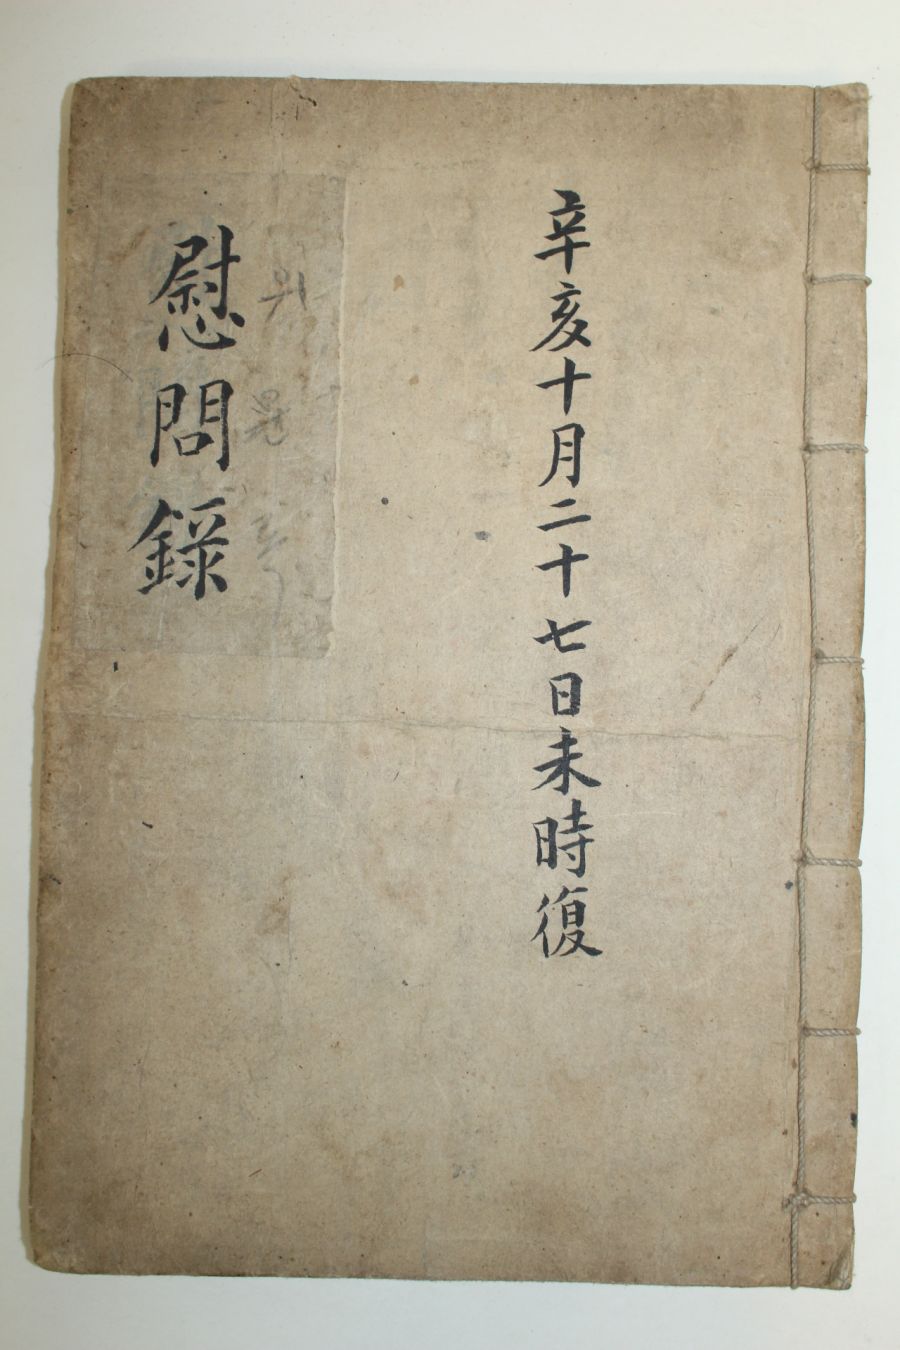 辛亥十月二十七日未時復
慰問錄